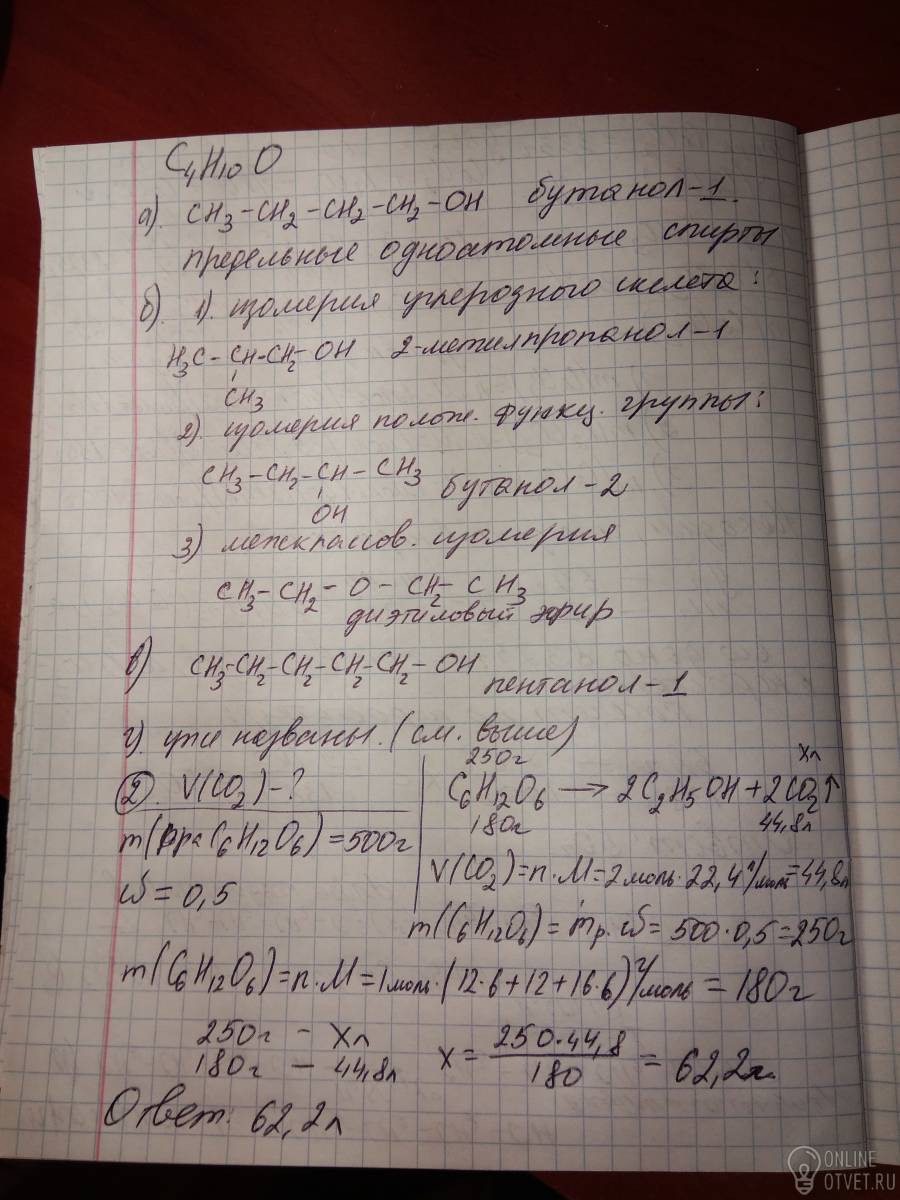 C4H10O
а). CH3-CH2-CH2-CH2-OH бутанол-1.
предельные одноатомные спирты
б) 1). изомерия углеродного скелета:
H3C-CH-CH2-OH 2-метилпропанол-1
CH3
2). изомерия полож. функц. группы:
CH3-CH2-CH-CH3
OH бутанол-2
3) межклассов. изомерия
CH3-CH2-O-CH2-CH3
диэтиловый эфир
в) CH3-CH2-CH2-CH2-CH2-OH
пентанол-1
г). уже названы. (см. выше)
2. V(CO2)-?
m(р-ра C6H12O6)=500г
ω=0,5
250г xл
C6H12O6 → 2C2H5OH+2CO2↑
180г 44,8л
V(CO2)=n·M=2моль·22,4л/моль=44,8л
m(C6H12O6)=mр.·ω=500·0,5=250г
m(C6H12O6)=n·M=1моль·(12·6+12+16·6)г/моль=180г
250г - Xл
180г - 44,8л
X=250·44,8/180=62,2л.
Ответ: 62,2л
ONLINE
OTVET.RU